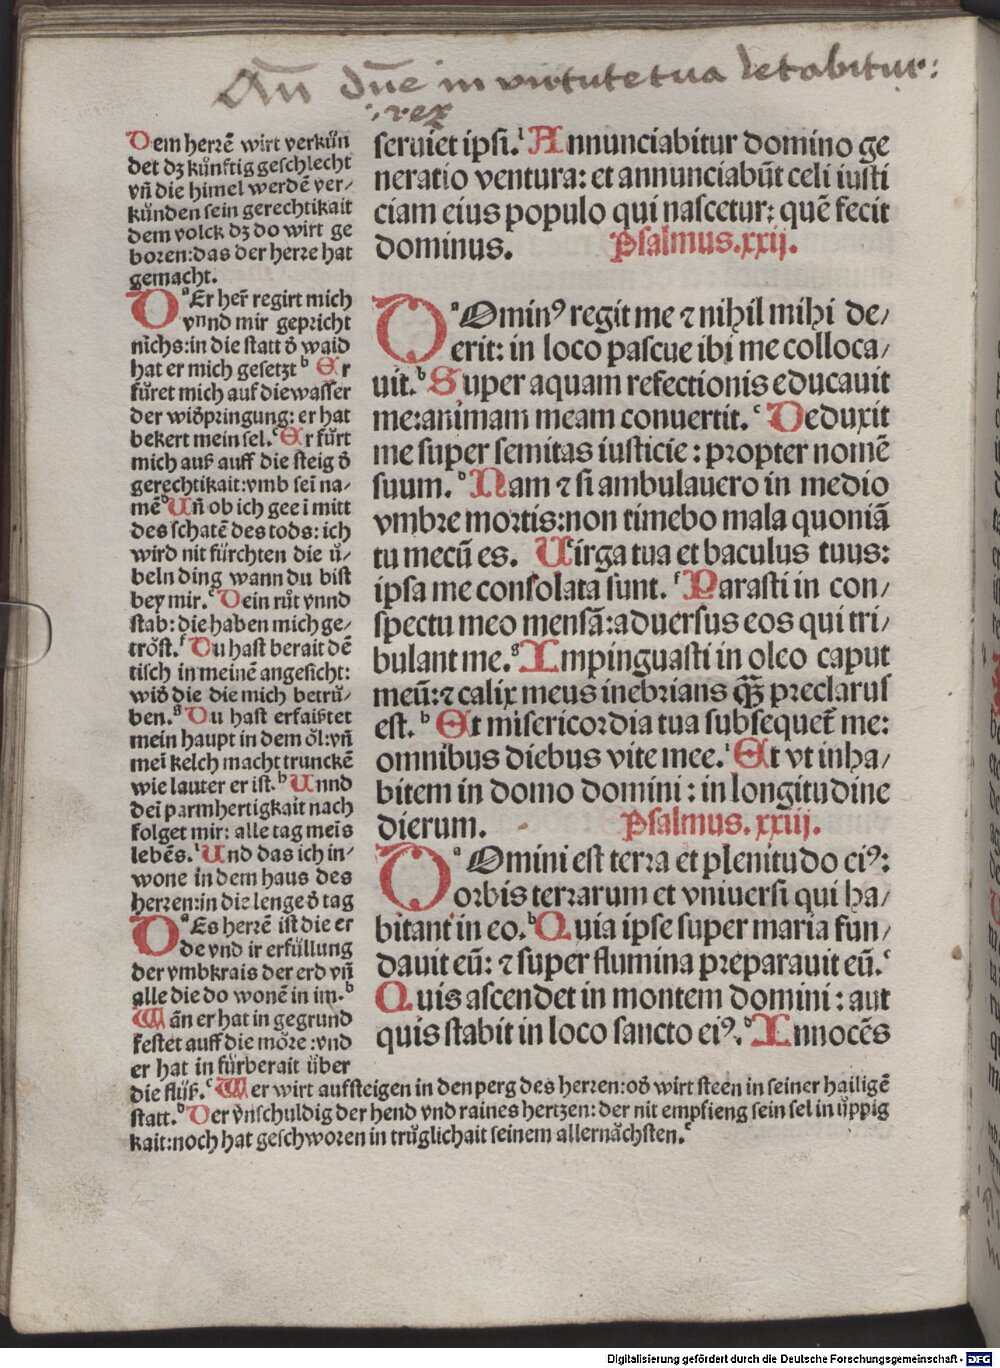 Añ dñe in virtute tua letabitur:
: rex
Dem herrẽ wirt verkün
det dʒ künftig geschlecht
vñ die himel werdẽ ver/
künden sein gerechtikait
dem volck dʒ do wirt ge
boren: das der herre hat
gemacht.
Dᵃ Er herr̃ regirt mich
vnnd mir gepricht
nichs: in die statt õ waid
hat er mich gesetzt ᵇ Er
füret mich auf die wasser
der widpringung: er hat
bekert mein sel. ᶜ Er fürt
mich auß auff die steig õ
gerechtikait: vmb sei na-
mẽ ᵈ Uñ ob ich gee i mitt
des schatẽ des tods: ich
wird nit fürchten die ü-
beln ding wann du bist
bey mir. ᵉ Dein rüt vnnd
stab: die haben mich ge-
tröst. ᶠ Du hast berait dẽ
tisch in meinẽ angesicht:
widð die die mich betrü-
ben. ᵍ Du hast erfaißtet
mein haupt in dem öl: vñ
mei kelch macht trunckẽ
wie lauter er ist. ʰ Unnd
dei parmhertigkait nach
folget mir: alle tag meis
lebẽs. ⁱ Und das ich in/
wone in dem haus des
herren: in die lenge õ tag
Dᵃ Es herrẽ ist die er
de vnd ir erfüllung
der vmbkrais der erd vñ
alle die do wonẽ in im. ᵇ
Wãn er hat in gegrund
festet auff die möre: vnd
er hat in fürberait über
die flüß. ᶜ Wer wirt aufsteigen in den perg des herren: oð wirt steen in seiner hailigẽ
statt. ᵈ Der vnschuldig der hend vnd raines hertzen: der nit empfieng sein sel in üppig
kait: noch hat geschworen in trüglichait seinem allernächsten. ᵉ
seruiet ipsi. ˡ Annunciabitur domino ge
neratio ventura: et annunciabũt celi iusti
ciam eius populo qui nascetur: quẽ fecit
dominus. Psalmus. xxij.
Dᵃ Ominꝰ regit me ⁊ nihil mihi de/
erit: in loco pascue ibi me colloca/
uit. ᵇ Super aquam refectionis educauit
me: animam meam conuertit. ᶜ Deduxit
me super semitas iusticie: propter nomẽ
suum. ᵈ Nam ⁊ si ambulauero in medio
vmbre mortis: non timebo mala quoniã
tu mecũ es. Uᵉirga tua et baculus tuus:
ipsa me consolata sunt. ᶠ Parasti in con/
spectu meo mensã: aduersus eos qui tri/
bulant me. ᵍ Impinguasti in oleo caput
meũ: ⁊ calix meus inebrians q̃ꝫ preclarus
est. ʰ Et misericordia tua subsequet̃ me:
omnibus diebus vite mee. ⁱ Et vt inha/
bitem in domo domini: in longitudine
dierum. Psalmus. xxiij.
Dᵃ Omini est terra et plenitudo eiꝰ:
orbis terrarum et vniuersi qui ha/
bitant in eo. ᵇ Quia ipse super maria fun/
dauit eũ: ⁊ super flumina preparauit eũ. ᶜ
Quis ascendet in montem domini: aut
quis stabit in loco sancto eiꝰ. ᵈ Innocẽs
Digitalisierung gefördert durch die Deutsche Forschungsgemeinschaft - DFG